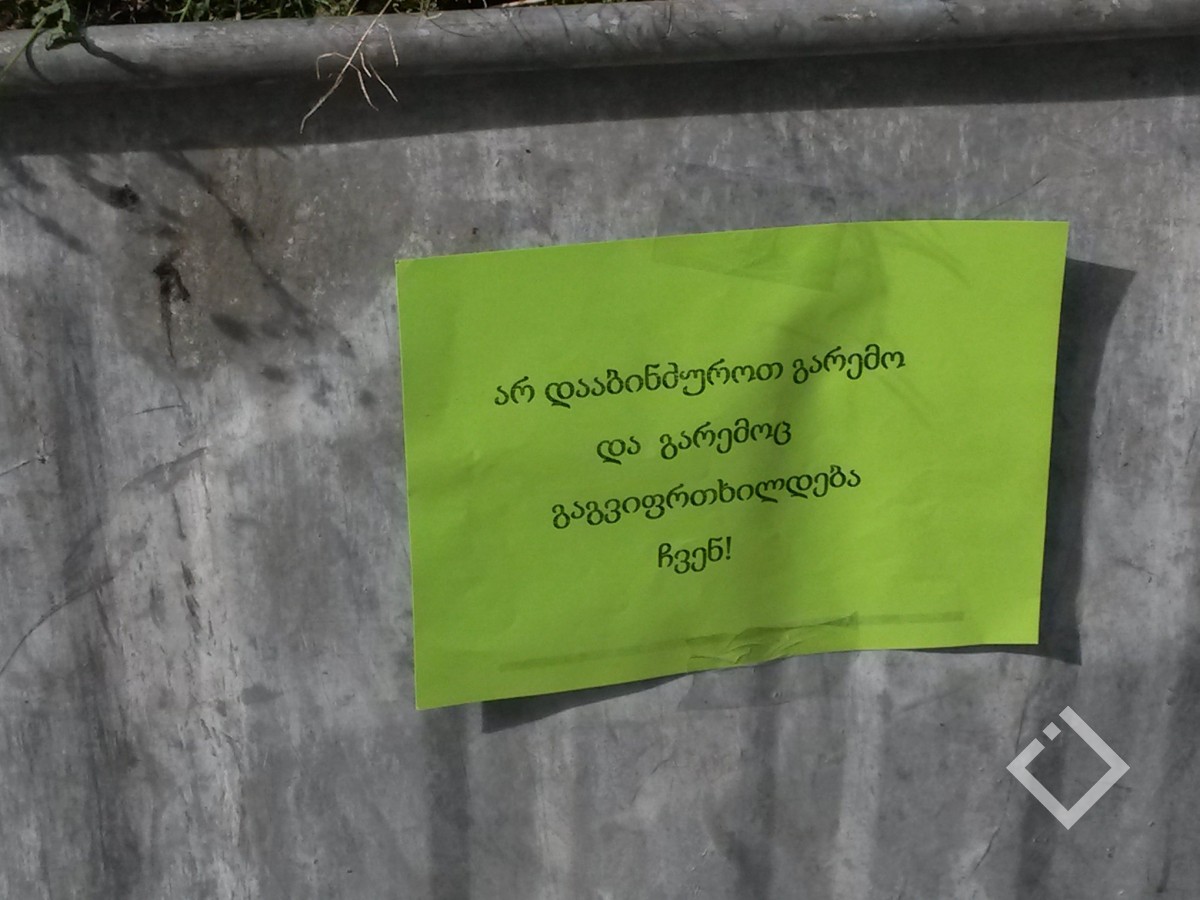 არ დააბინძუროთ გარემო
და გარემოც
გაგვიფრთხილდება
ჩვენ!